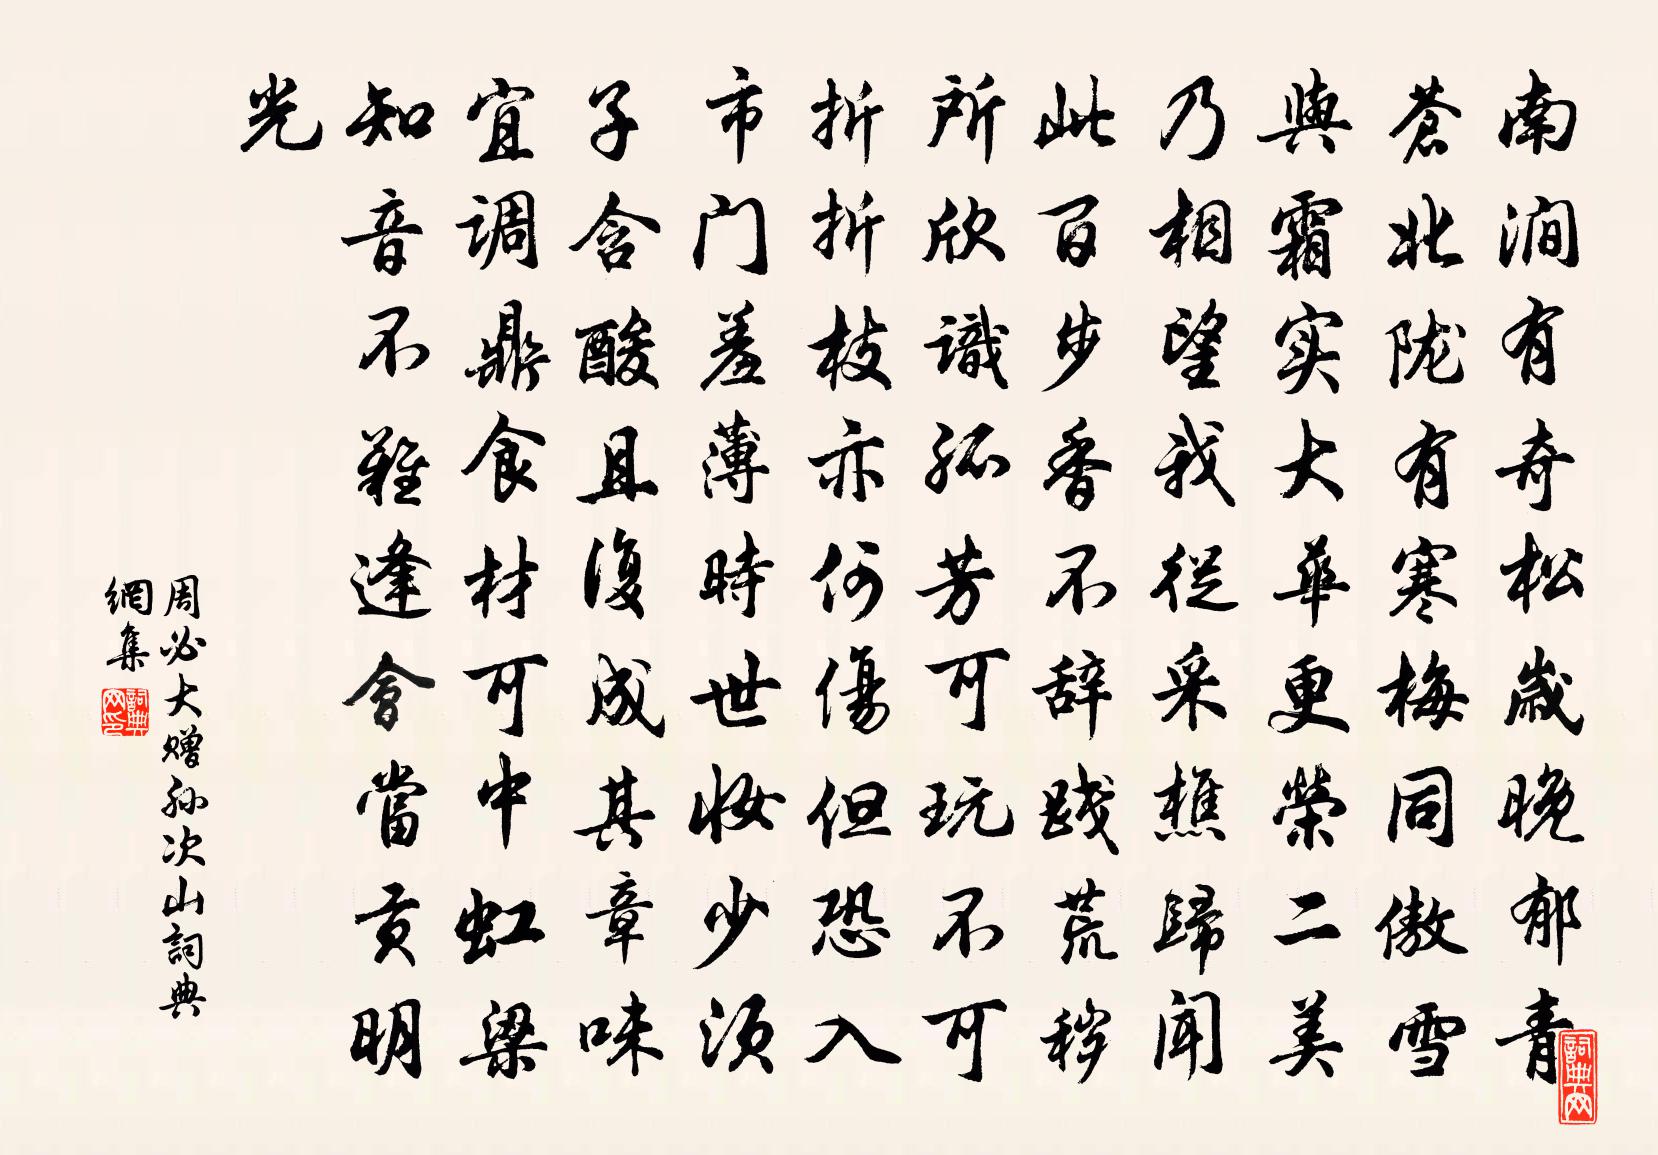 南涧有奇松歲晚郁青
蒼北陇有寒梅同傲雪
與霜实大華更榮二美
乃相望我從采樵歸聞
此百步香不辞践荒秽
所欣識孤芳可玩不可
折折枝亦何傷但恐入
市门羞薄時世妆少须
子含酸且復成其章味
宜调鼎食材可中虹梁
知音不難逢會當贡明
光
周必大赠孙次山詞典
網集
詞典网印
詞典网